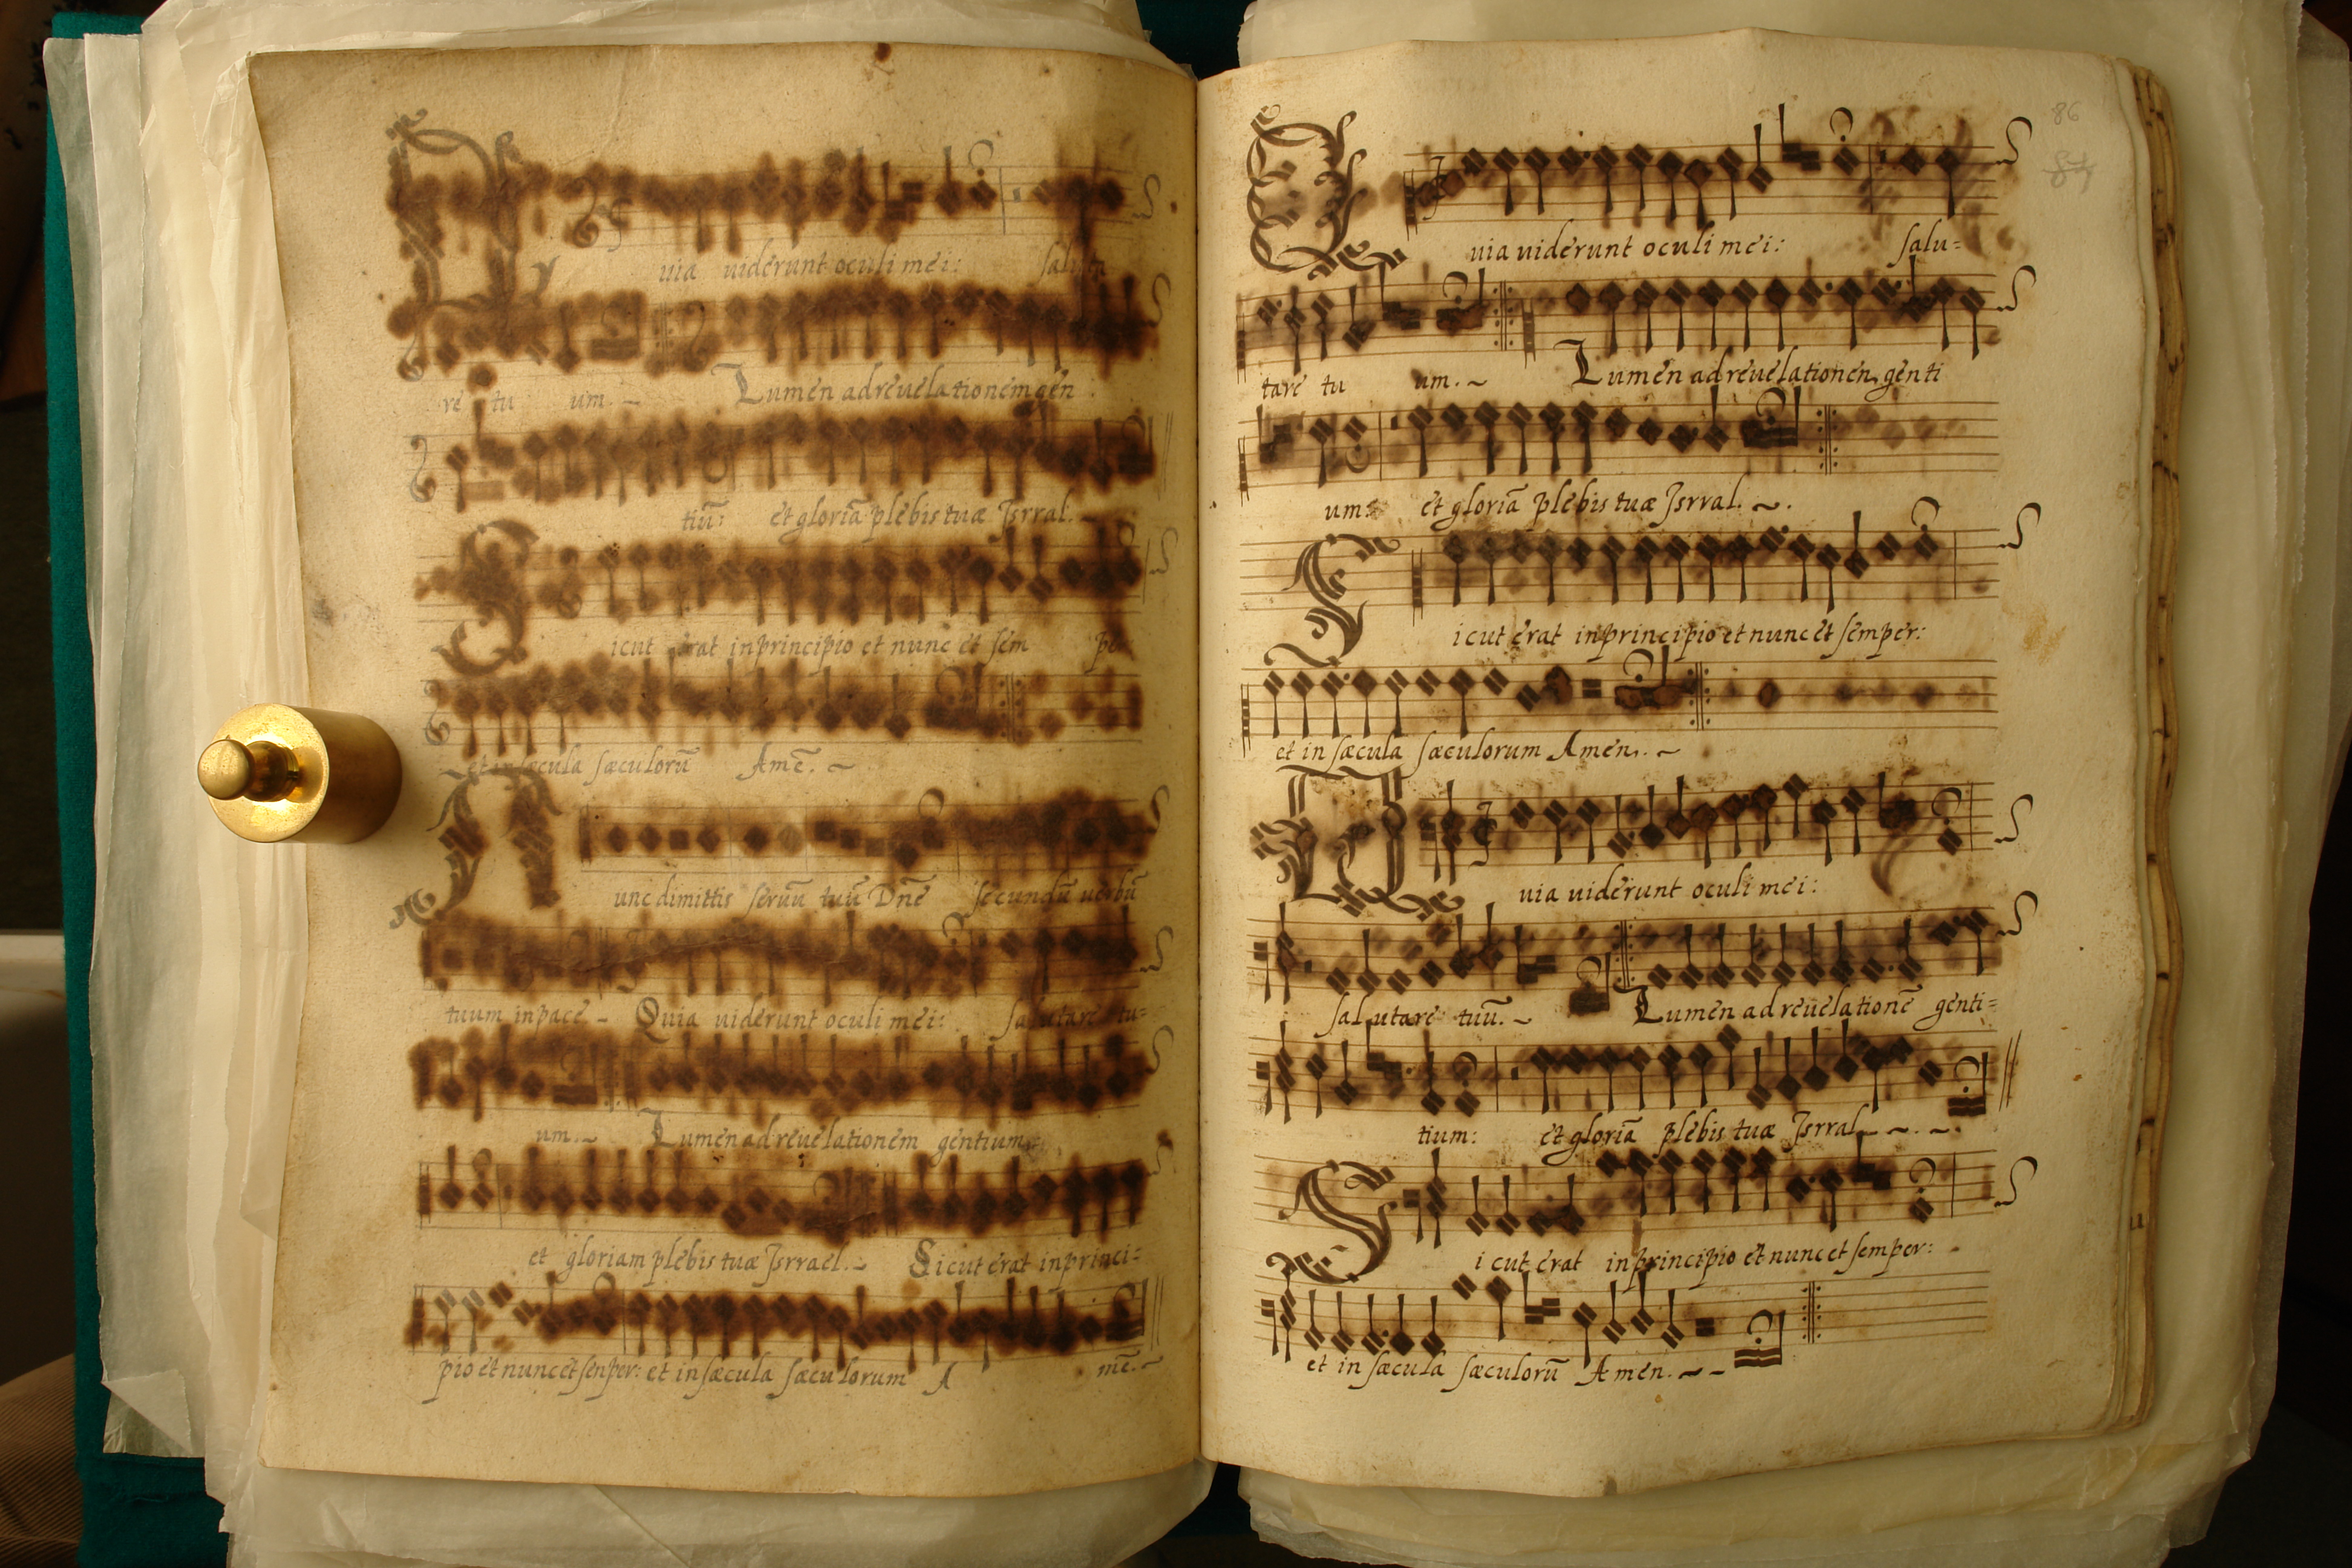 Quia uiderunt oculi mei: saluta
re tu um. ~ Lumen ad reuelationem gen
tiū: et gloriā plebis tuæ Jsrral. ~
Sicut erat in principio et nunc et sem per
et in sæcula sæculorū Amē. ~
Nunc dimittis seruū tuū Dn̄e secundū uerbū
tuum in pace ~ Quia uiderunt oculi mei: salutare tu=
um. ~ Lumen ad reuelationem gentium
et gloriam plebis tuæ Jsrrael. ~ Sicut erat in princi=
pio et nunc et senper: et in sæcula sæculorum A mē. ~
86
87
Quia uiderunt oculi mei: salu=
tare tu um. ~ Lumen ad reuelationen genti
um: et gloriā plebis tuæ Jsrral. ~ .
Sicut erat in principio et nunc et semper:
et in sæcula sæculorum Amen. ~
Quia uiderunt oculi mei:
salutare tuū. ~ Lumen ad reuelationē genti=
tium: et gloriā plebis tuæ Jsrral ~ . ~ .
Sicut erat in principio et nunc et semper:
et in sæcula sæculorū Amen. ~ ~